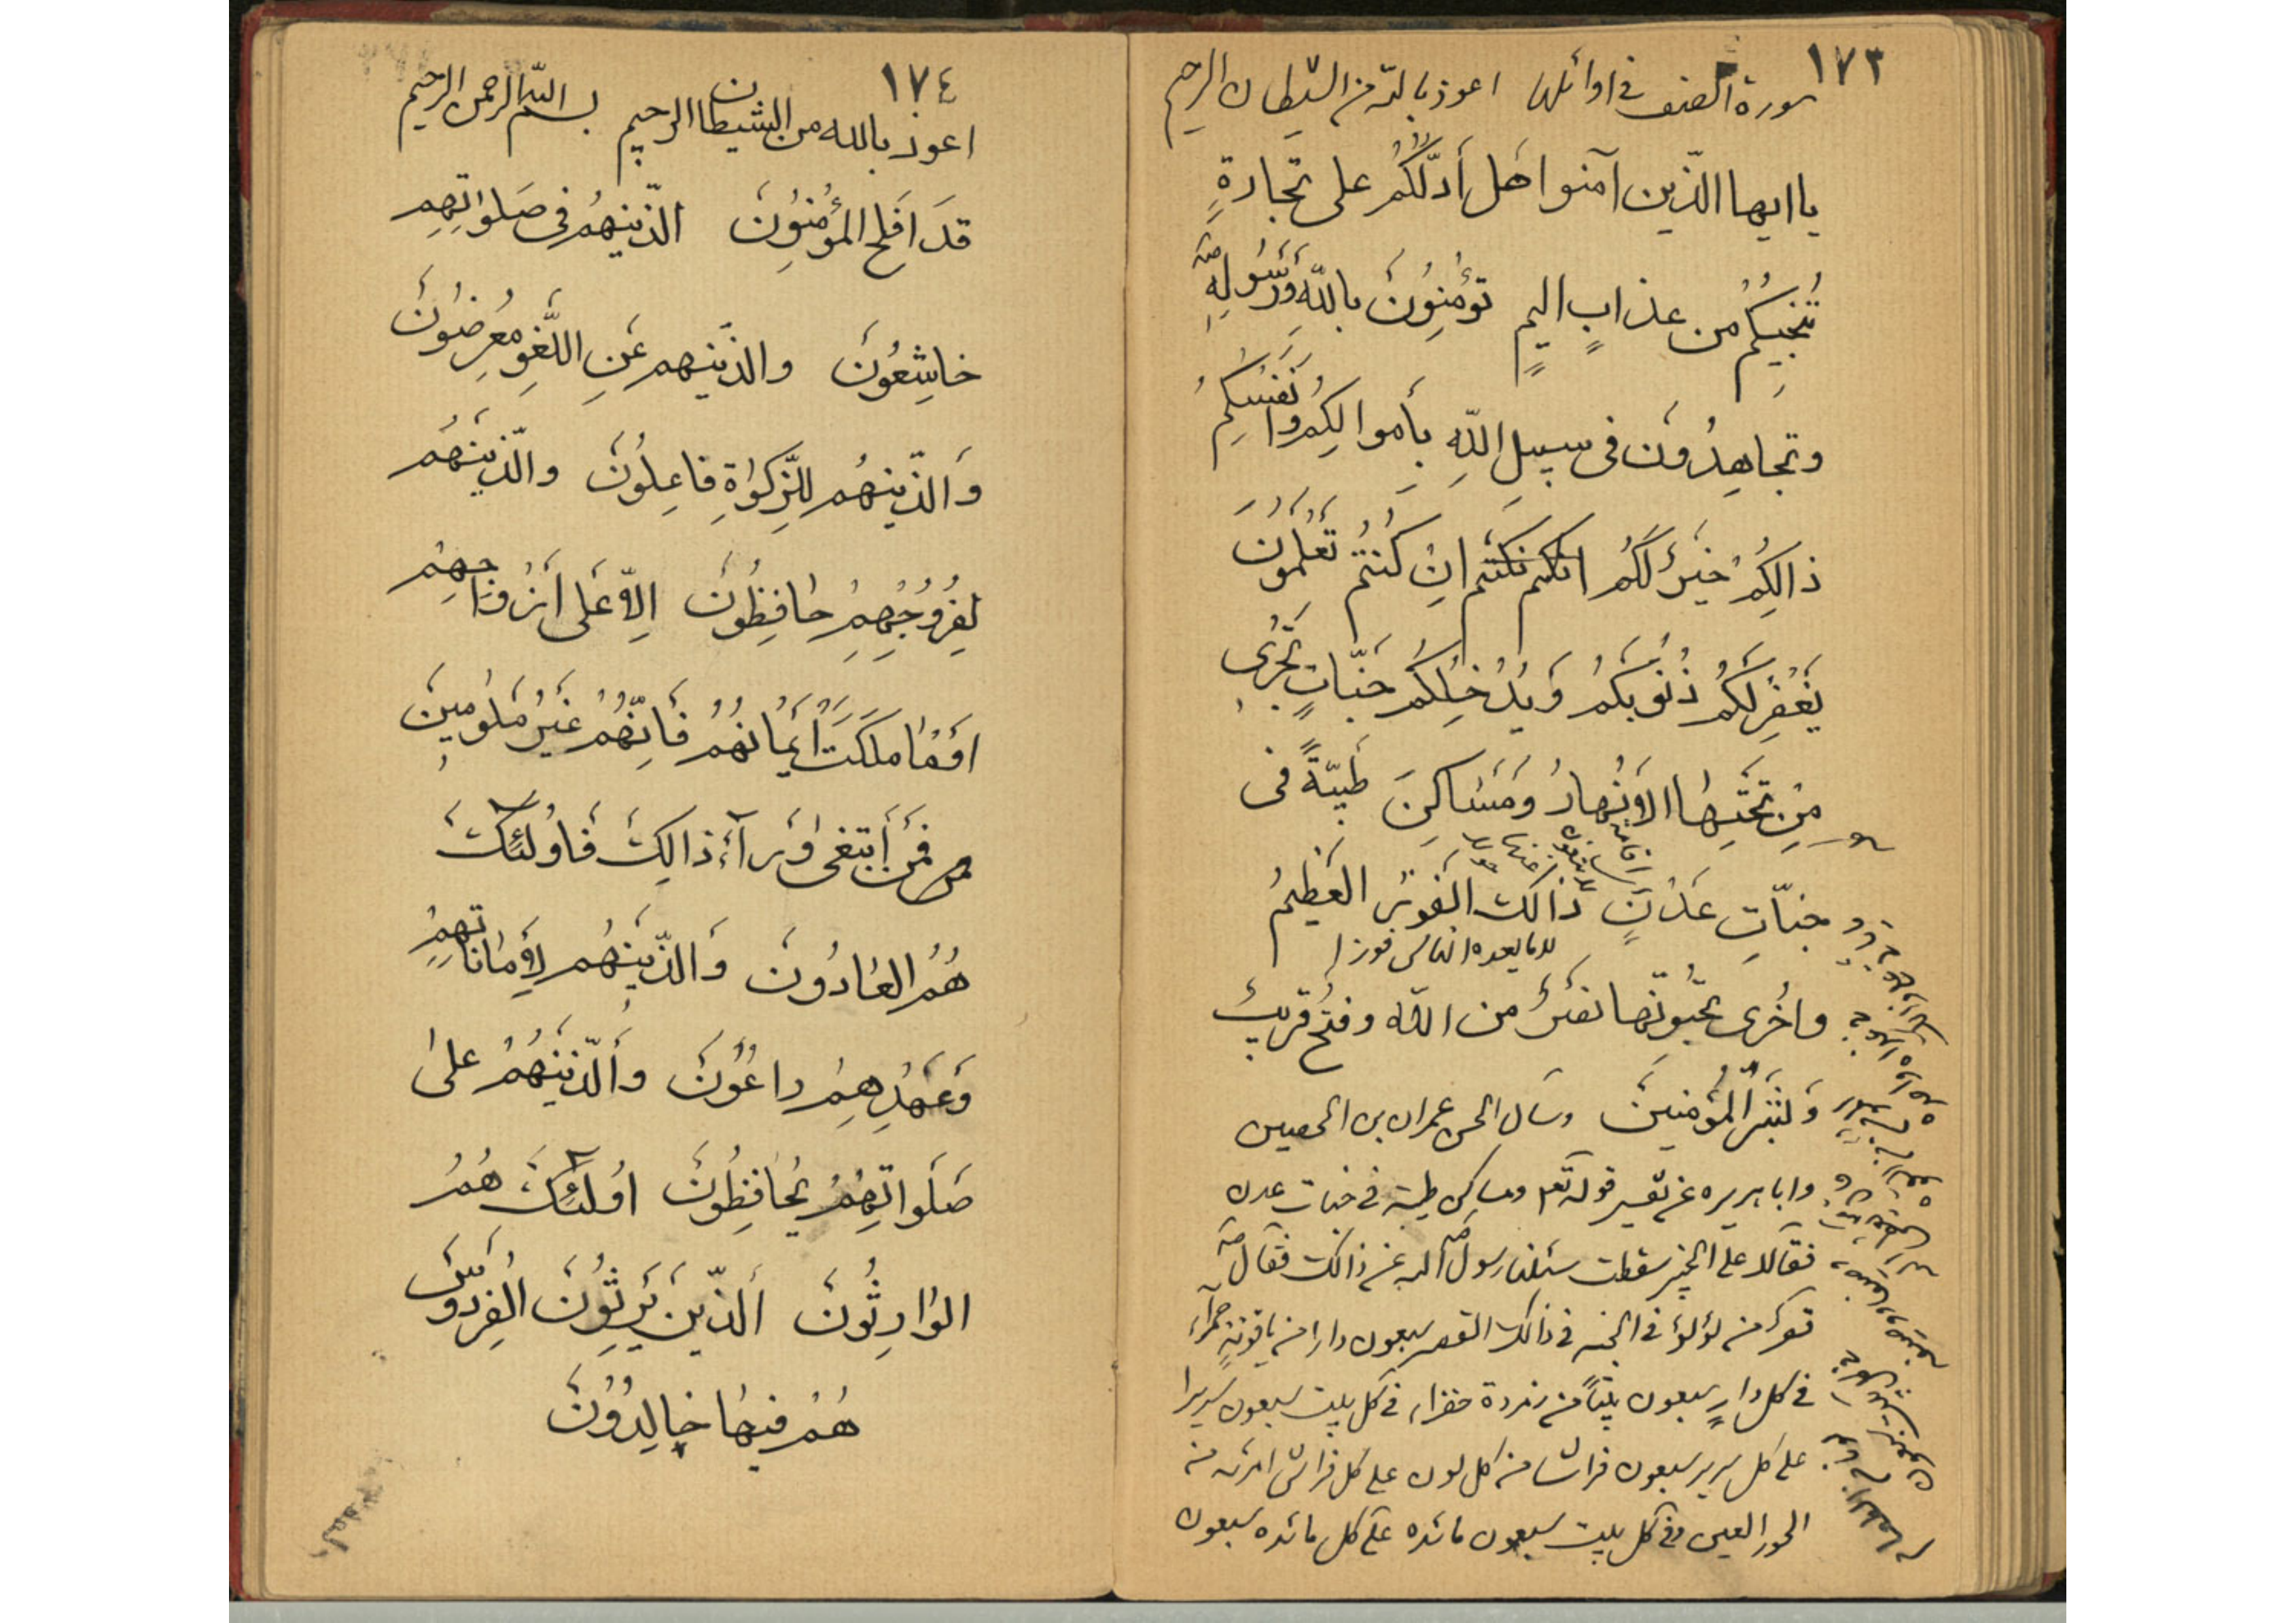 ١٧٣
سورة الصف في اوائلها اعوذ بالله من الشيطان الرجيم
يا ايها الذّين آمنوا هَل أدلّكُمْ على تجارةٍ
تُنجيكُمْ من عذابٍ اليمٍ تؤمِنوُنَ باللّهِ وَرَسُولِهِ
وتجاهِدُونَ فى سبيلِ اللّهِ بأموالِكُم وانفسكم
ذالِكُمْ خيرٌ لكُم انكم كنتم انِ كُنتُم تَعْلَموُنَ
يَغْفِر لَكُمْ ذُنُوبكُمْ وَيُدْخِلكُم جَنّاتٍ تَجْرى
مِن تَحْتِهَا الأنْهارُ وَمَسَاكِنَ طَيبّةً فى
جنّاتِ عَدْنٍ ذالكَ الفَوزُ العَظيمُ
للما يعده الناس فوزا
واُخْرى تحبّونَها نصرٌ من اللّه وفتحٌ قريبٌ
وَبَشّرِ المُؤمنينَ وسال الحسن عمران بن الحصين
وابا هريره عن تفسير قوله تعالى ومساكن طيبة فى جنات عدن
فقالا على الخبير سقطت سئلنا رسول الله عن ذالك فقال
قصر من لؤلؤ فى الجنه فى ذالك القصر سبعون دارا من ياقوتةٍ حمراء
فى كل دارٍ سبعون بيتاً من زمردة خضراء فى كل بيت سبعون سريرا
على كل سرير سبعون فراشا من كل لون على كل فراش امرئه من
الحور العين وفى كل بيت سبعون مائده على كل مائده سبعون
١٧٤
اعوذ بالله من الشيطان الرجيم بسم اللّه الرحمن الرحيم
قدَ اَفلح المؤمنوُنَ الذّينهُم فى صَلواتهِم
خاشِعُونَ والذّينهم عَنِ اللَّغوِ مُعرِضوُنَ
وَالذّينهُم للِزّكواةِ فاعِلوُنَ والذّينَهُم
لِفرُوُجِهِمْ حافِظُونَ اِلاّ على اَزْواجِهِمْ
اَوْمٰا مَلَكَتْ أيمٰانُهُمْ فَاِنّهُمْ غَيْرُ مَلوُمينَ
فَمَن أبتغى وَرآءَ ذالِكَ فَاوُلئِكَ
هُمُ العٰادُونَ وَالذّينَهُم لِأمٰاناتِهِمْ
وَعَهْدِهِمْ راعُونَ وَالّذينَهُمْ على
صَلَواتِهِمْ يُحٰافِظُونَ اوُلئِكَ هُمُ
الوٰارِثُونَ اَلذّينَ يَرِثُونَ الفِردَوسَ
هُمْ فيهٰا خٰالِدُونَ